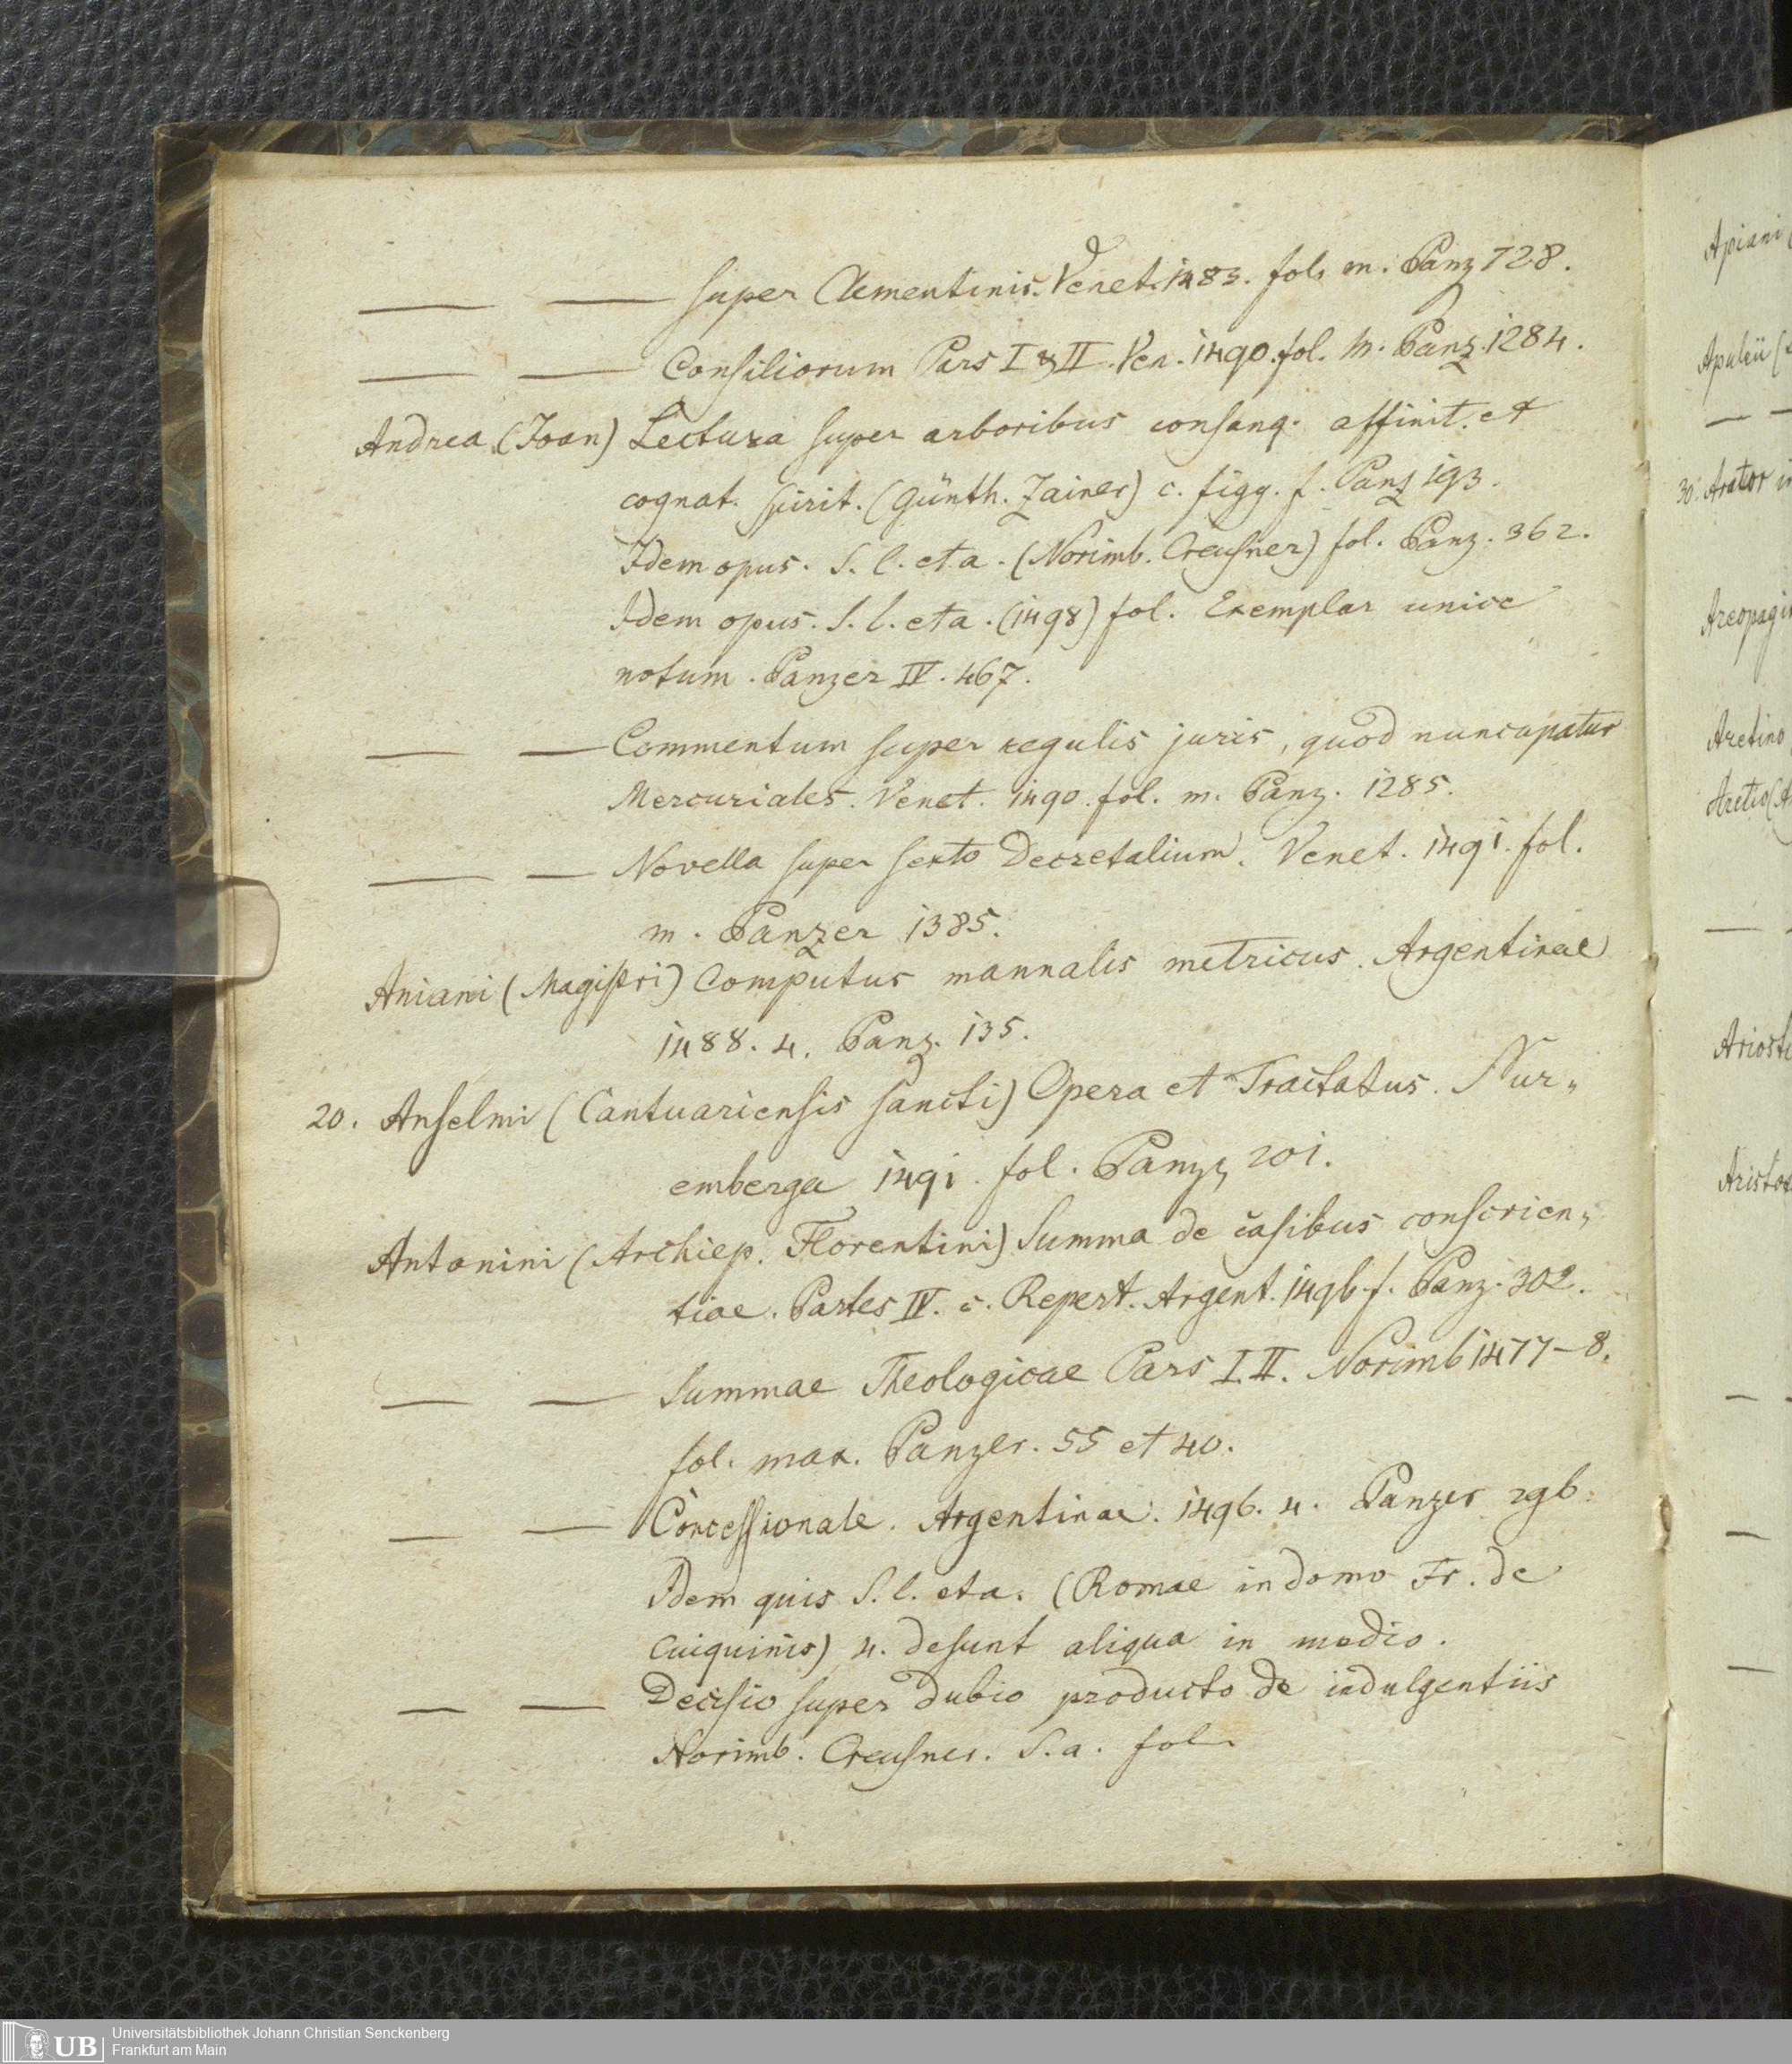 — — super Clementinis. Venet. 1483. fol. m. Panz 728.
— — Consiliorum Pars I & II. Ven. 1490. fol. m. Panz. 1284.
Andrea (Joan) Lectura super arboribus consang. affinit. et
cognat. spirit. (Günth. Zainer) c. figg. f. Panz 193.
Idem opus. S. l. et a. (Norimb. Creusner) fol. Panz. 362.
Idem opus. S. l. et a. (1498) fol. Exemplar unice
notum. Panzer IV. 467.
— — Commentum super regulis juris, quod nuncupatur
Mercuriales. Venet. 1490. fol. m. Panz. 1285.
— — Novella super sexto Decretalium. Venet. 1491. fol.
m. Panzer 1385.
Aniani (Magistri) Computus mannalis metricus. Argentinae
1488. 4. Panz. 135.
20. Anselmi (Cantuariensis Sancti) Opera et Tractatus. Nur„
emberga 1491. fol. Panz, 201.
Antonini (Archiep. Florentini) Summa de casibus conscrien„
tiae. Partes IV. c. Repert. Argent. 1496. f. Panz. 302.
— — Summae Theologicae Pars I. II. Norimb 1477–8.
fol. max. Panzer. 55 et 40.
— — Concessionale. Argentinae. 1496. 4. Panzer 296.
Idem quis S. l. et a. (Romae in domo Fr. de
Cuiquinis) 4. desunt aliqua in medio.
— — Decisio super dubio producto de indulgentiis
Norimb. Creusner. S. a. fol.
Apiani
Apuleii (
— —
30. Arator in
Areopagi
Aretino
Aretio (A
—
Ariost
Aristo
—
—
—
UB Universitätsbibliothek Johann Christian Senckenberg
Frankfurt am Main